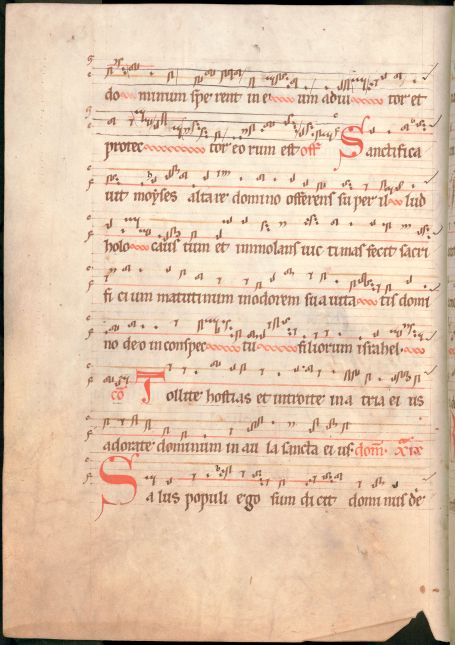 do minum spe rent in e um adiu tor et
protec tor eo rum est off Sanctifica
uit moyses altare domino offerens su per il lud
holo caus tum et immolans uic timas fecit sacri
fi ci um matutinum inodorem sua uita tis domi
no deo in conspec tu filiorum israhel
co Tollite hostias et introite in a tria ei us
adorate dominum in au la sancta ei us dom xix
Salus populi ego sum dicit dominus de